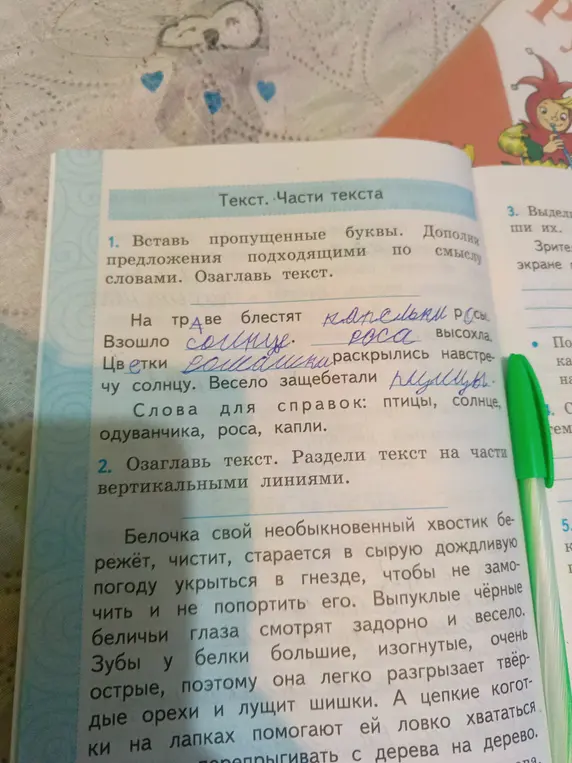 Текст. Части текста
1. Вставь пропущенные буквы. Дополни
предложения подходящими по смыслу
словами. Озаглавь текст.
На траве блестят капельки росы.
Взошло солнце. роса высохла.
Цветки ромашки раскрылись навстре-
чу солнцу. Весело защебетали птицы.
Слова для справок: птицы, солнце,
одуванчика, роса, капли.
2. Озаглавь текст. Раздели текст на части
вертикальными линиями.
Белочка свой необыкновенный хвостик бе-
режёт, чистит, старается в сырую дождливую
погоду укрыться в гнезде, чтобы не замо-
чить и не попортить его. Выпуклые чёрные
беличьи глаза смотрят задорно и весело.
Зубы у белки большие, изогнутые, очень
острые, поэтому она легко разгрызает твёр-
дые орехи и лущит шишки. А цепкие когот-
ки на лапках помогают ей ловко хвататься
перепрыгивать с дерева на дерево.
3. Выдели
ши их.
Зрите
экране
По
ка
на
5.